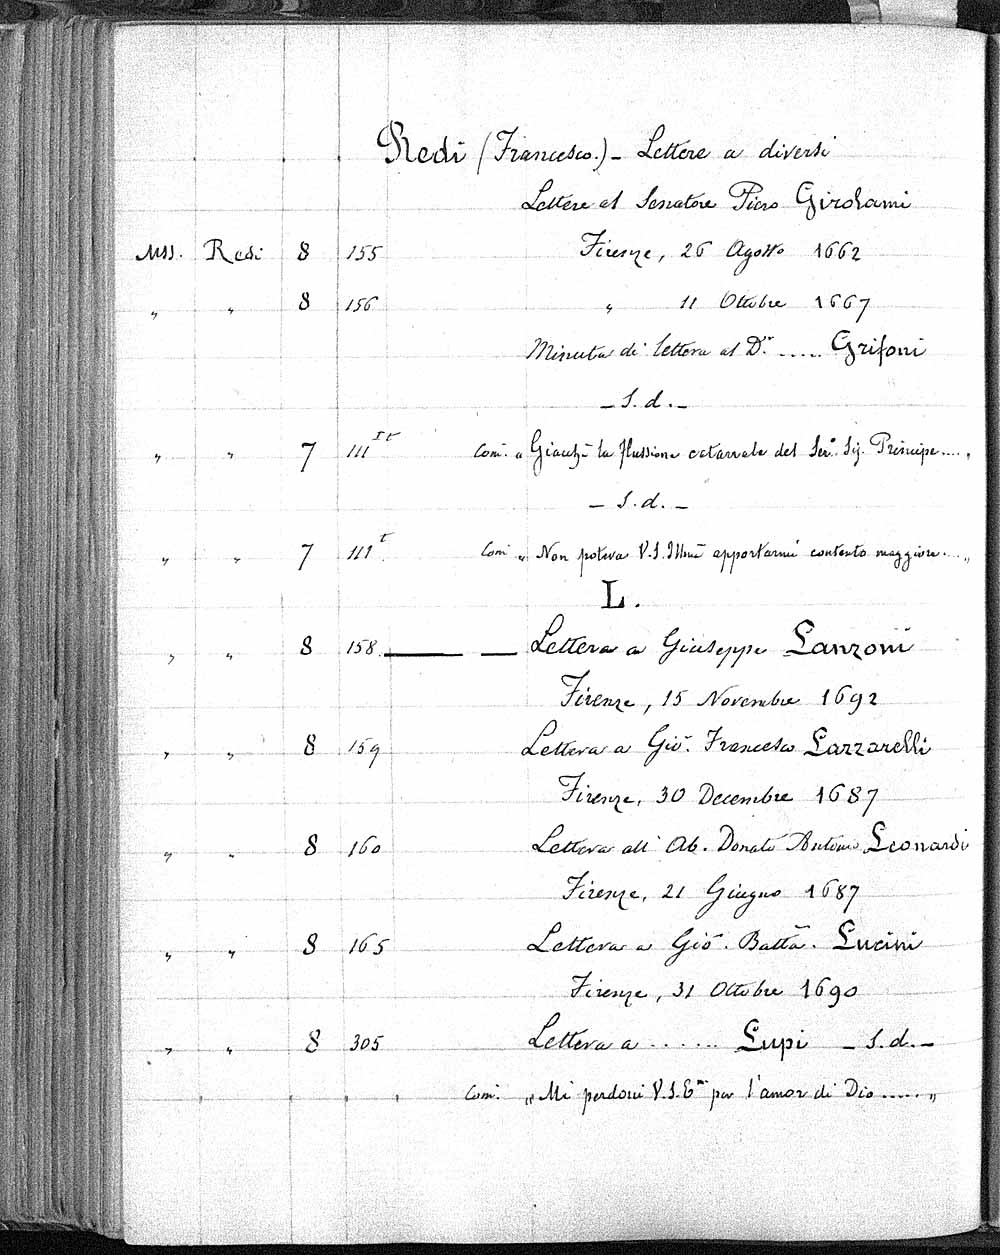 Redi (Francesco.) – Lettere a diversi
Lettere al Senatore Piero Girolami
MSS. Redi 8 155 Firenze, 26 Agosto 1662
„ „ 8 156 „ 11 Ottobre 1667
Minuta di lettera al D.r ..... Grifoni
– S. d. –
„ „ 7 111 It Com. „ la flussione catarrale del Ser.o Sig. Principe .... „
– S. d. –
„ „ 7 111 t Com. „ Non poteva V.S. Illma apportarmi contento maggiore .... „
L.
„ „ 8 158 Lettera a Giuseppe Lanzoni
Firenze, 15 Novembre 1692
„ „ 8 159 Lettera a Gio. Francesco Lazzarelli
Firenze, 30 Decembre 1687
„ „ 8 160 Lettera all' Ab. Donato Antonio Leonardi
Firenze, 21 Giugno 1687
„ „ 8 165 Lettera a Gio. Batta. Lucini
Firenze, 31 Ottobre 1690
„ „ 8 305 Lettera a ...... Lupi – S. d. –
Com. „ Mi perdoni V.S. E.ma per l'amor di Dio ..... „